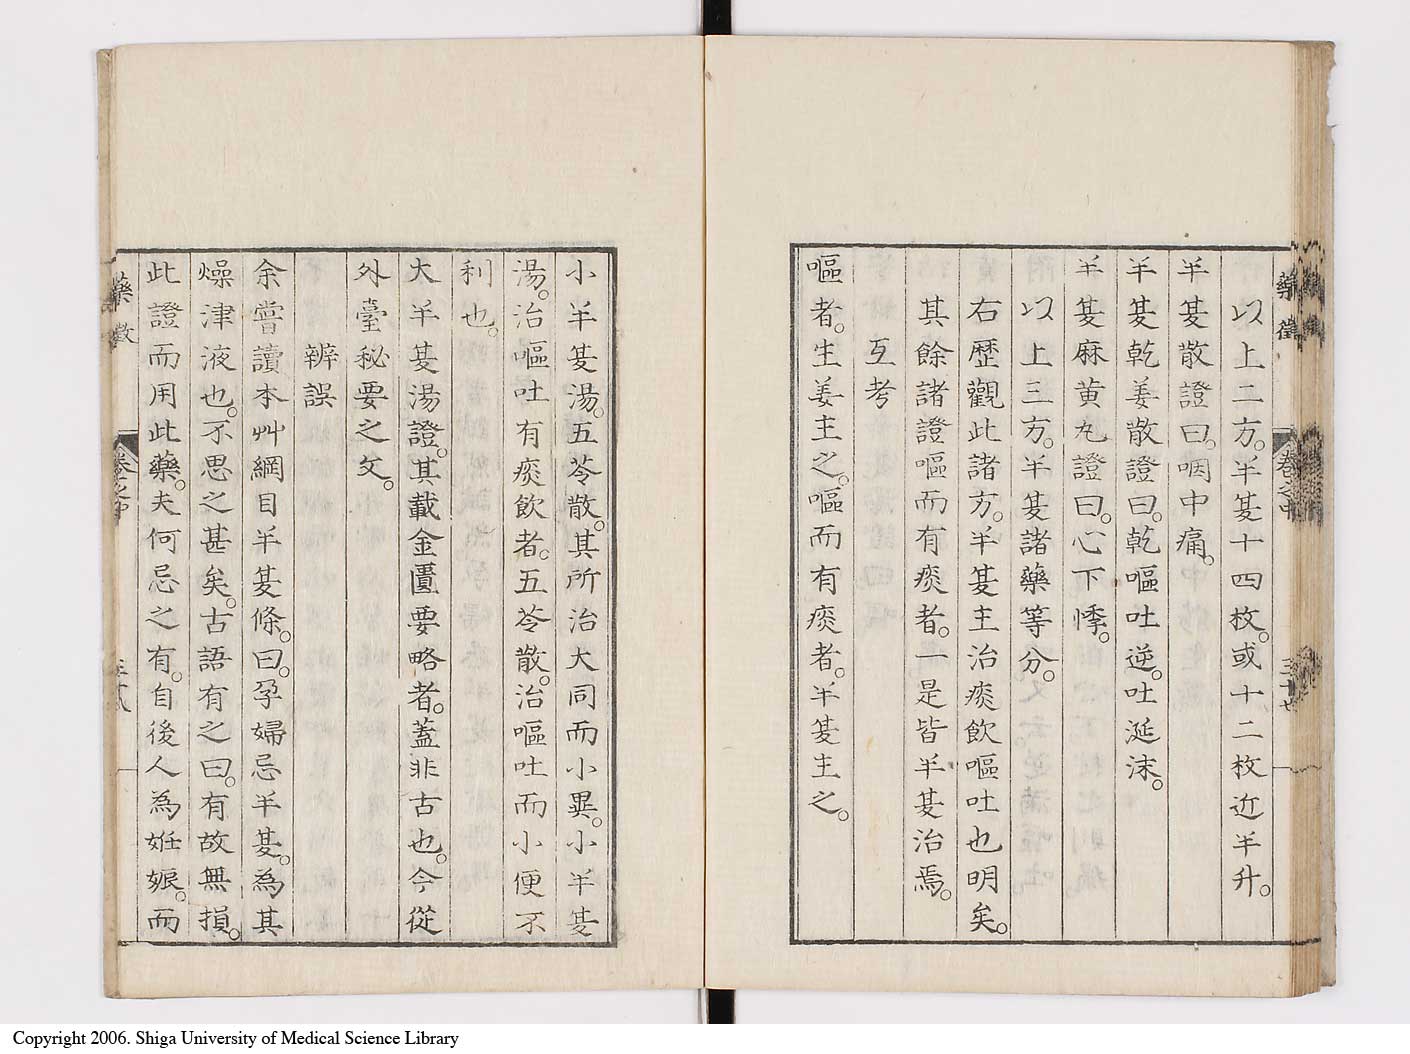 藥徵　卷之中　三十七
以上二方。半夏十四枚。或十二枚近半升。
半夏散證曰。咽中痛。
半夏乾姜散證曰。乾嘔吐逆。吐涎沫。
半夏麻黄丸證曰。心下悸。
以上三方。半夏諸藥等分。
右歷觀此諸方。半夏主治痰飲嘔吐也明矣。
其餘諸證嘔而有痰者。一是皆半夏治焉。
互考
嘔者。生姜主之。嘔而有痰者。半夏主之。
小半夏湯。五苓散。其所治大同而小異。小半夏
湯。治嘔吐有痰飲者。五苓散。治嘔吐而小便不
利也。
大半夏湯證。其載金匱要略者。蓋非古也。今從
外臺秘要之文。
辨誤
余嘗讀本艸綱目半夏條。曰。孕婦忌半夏。為其
燥津液也。不思之甚矣。古語有之曰。有故無損。
此證而用此藥。夫何忌之有。自後人為姙娠。而
藥徵　卷之中　三十八
Copyright 2006. Shiga University of Medical Science Library